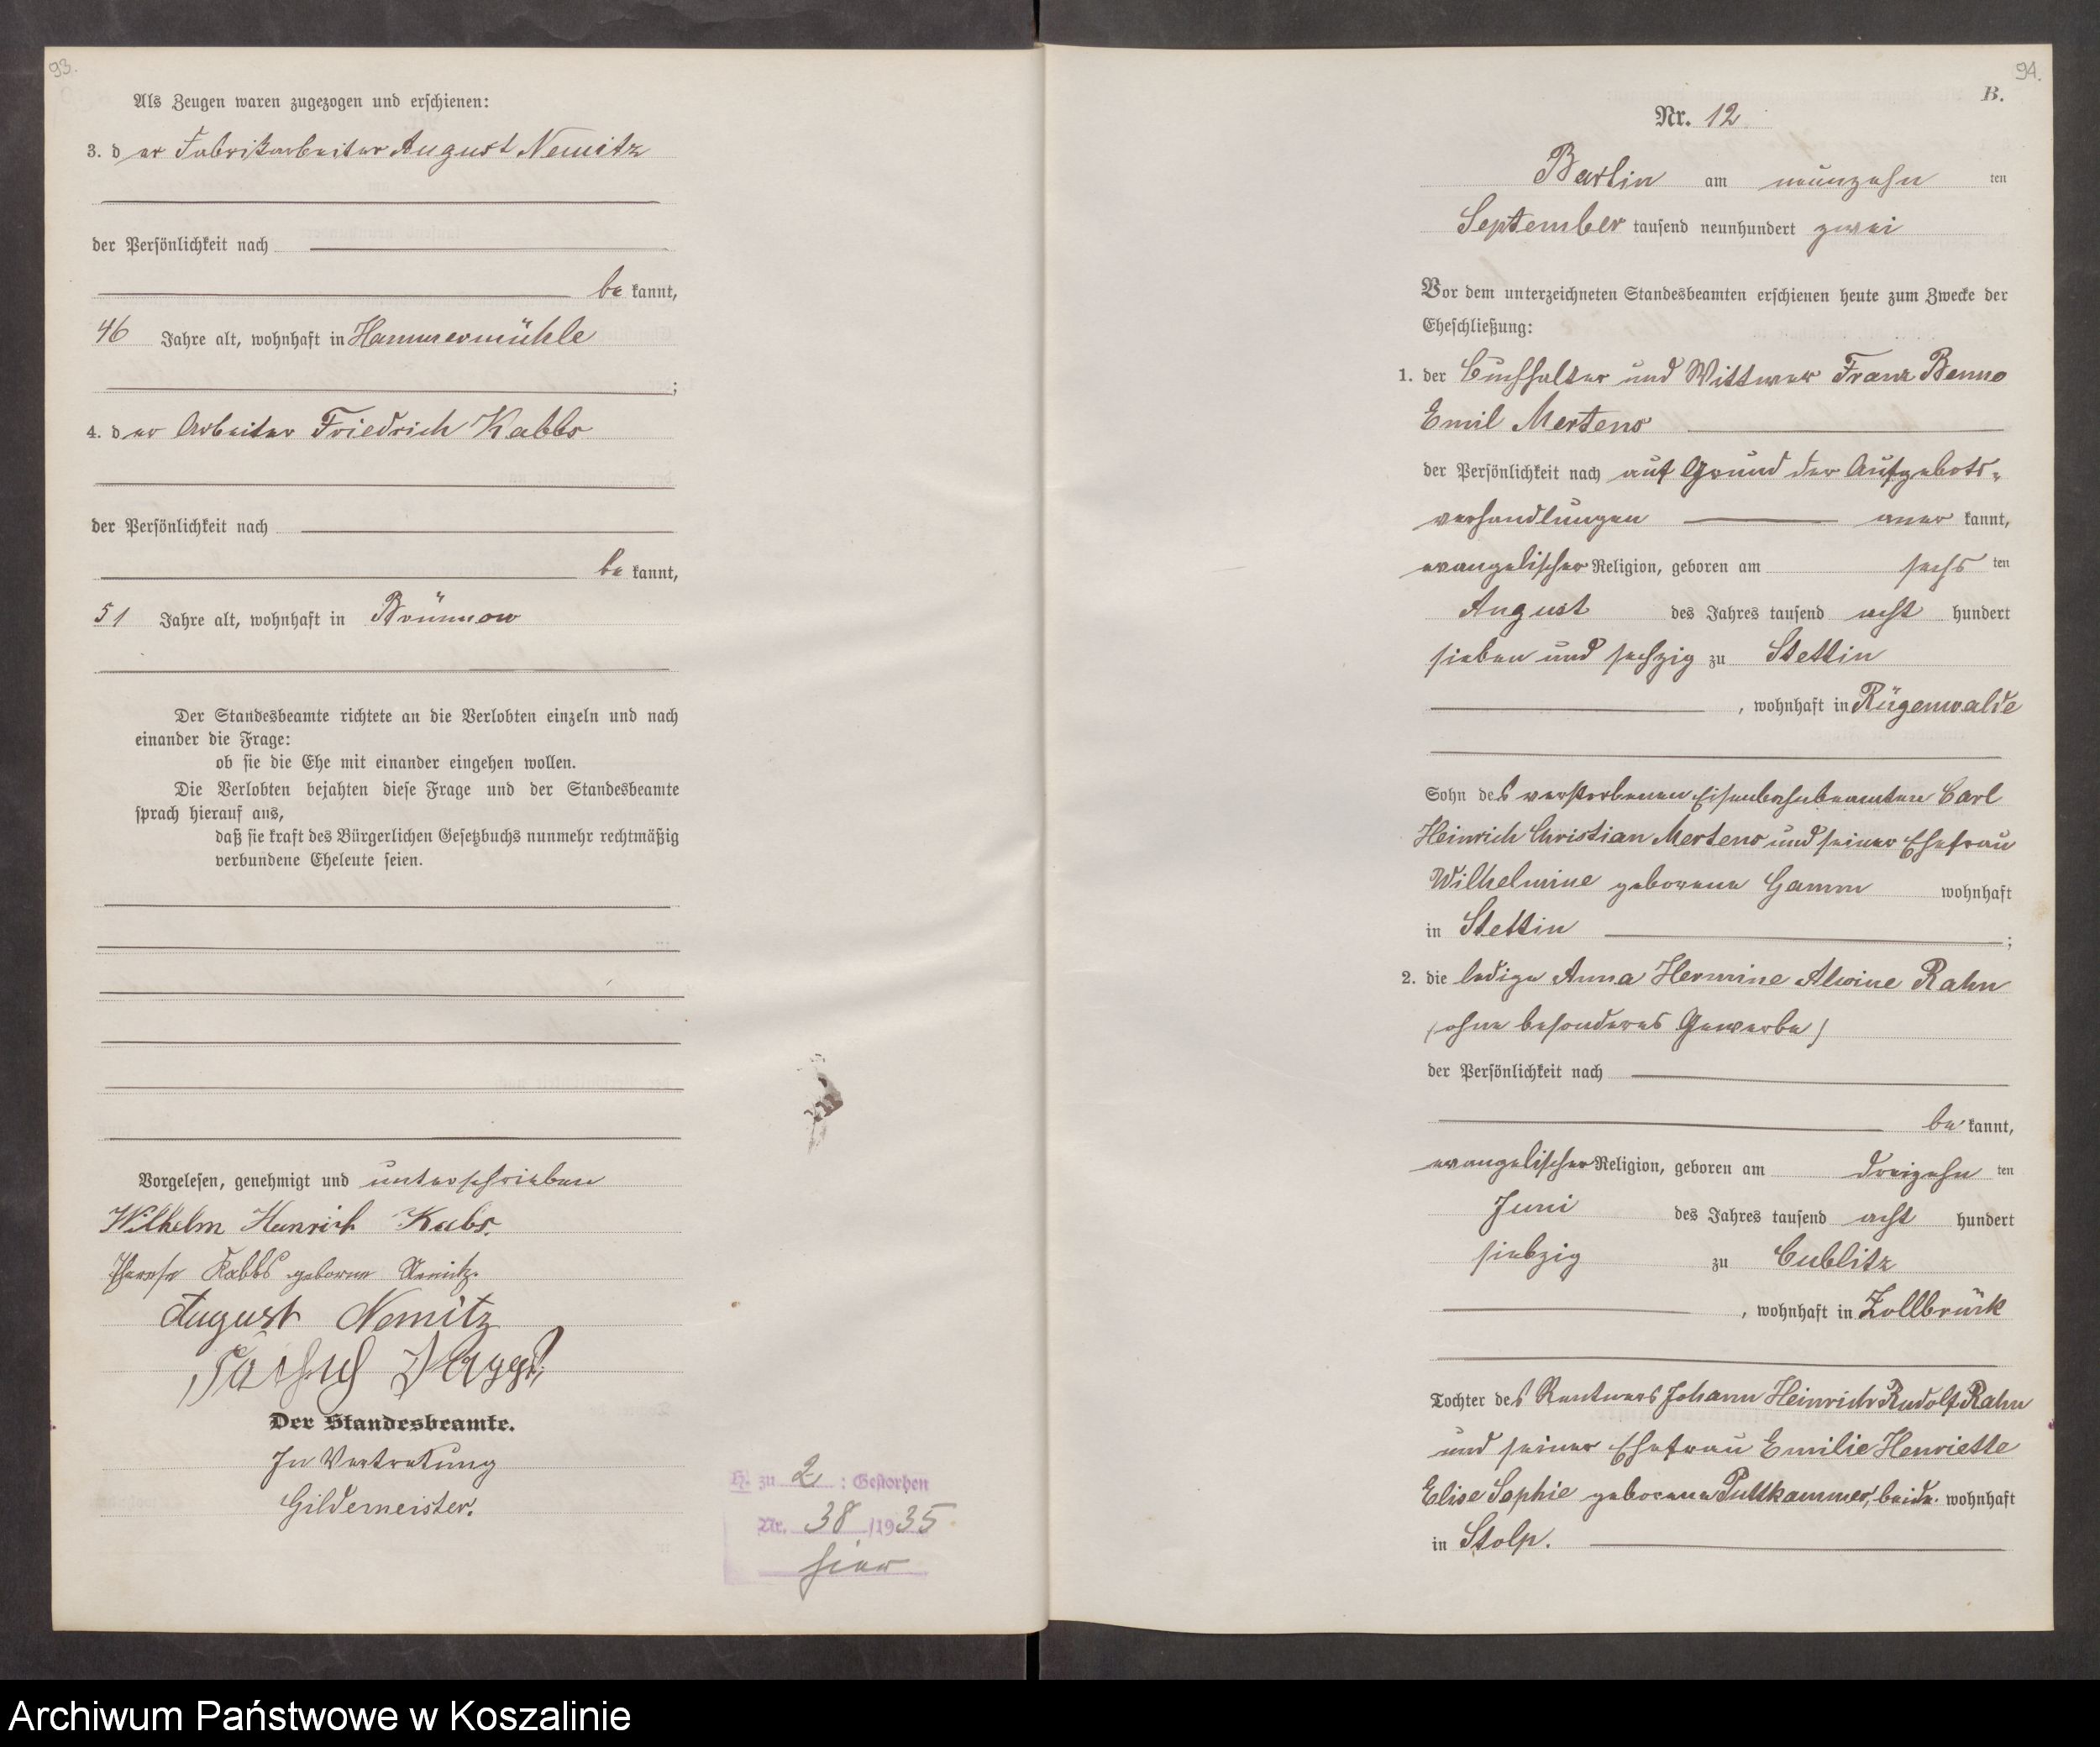 93.
Als Zeugen waren zugezogen und erschienen:
3. der Fabrikarbeiter August Nemitz
der Persönlichkeit nach
bekannt,
46 Jahre alt, wohnhaft in Hammermühle
;
4. der Arbeiter Friedrich Kabbs
der Persönlichkeit nach
bekannt,
51 Jahre alt, wohnhaft in Brünnow
Der Standesbeamte richtete an die Verlobten einzeln und nach
einander die Frage:
ob sie die Ehe mit einander eingehen wollen.
Die Verlobten bejahten diese Frage und der Standesbeamte
sprach hierauf aus,
daß sie kraft des Bürgerlichen Gesetzbuchs nunmehr rechtmäßig
verbundene Eheleute seien.
Vorgelesen, genehmigt und unterschrieben
Wilhelm Heinrich Kabs.
Therese Kabbs geborene Nemitz.
August Nemitz
Der Standesbeamte.
In Vertretung
Gildemeister.
H. zu 2 : Gestorben
Nr. 38 /1935
hier
94.
B.
Nr. 12
Barlin am neunzehn ten
September tausend neunhundert zwei
Vor dem unterzeichneten Standesbeamten erschienen heute zum Zwecke der
Eheschließung:
1. der Buchhalter und Wittwer Franz Benno
Emil Mertens
der Persönlichkeit nach auf Grund der Aufgebots-
verhandlungen anerkannt,
evangelischer Religion, geboren am sechs ten
August des Jahres tausend acht hundert
sieben und sechzig zu Stettin
, wohnhaft in Rügenwalde
Sohn des verstorbenen Eisenbahnbeamten Carl
Heinrich Christian Mertens und seiner Ehefrau
Wilhelmine geborene Gamm wohnhaft
in Stettin ;
2. die ledige Anna Hermine Alwine Rahn
(ohne besonderes Gewerbe)
der Persönlichkeit nach
bekannt,
evangelischer Religion, geboren am dreizehn ten
Juni des Jahres tausend acht hundert
siebzig zu Bublitz
, wohnhaft in Zollbrück
Tochter des Rentners Johann Heinrich Rudolf Rahn
und seiner Ehefrau Emilie Henriette
Elise Sophie geborene Puttkammer, beide wohnhaft
in Stolp.
Archiwum Państwowe w Koszalinie